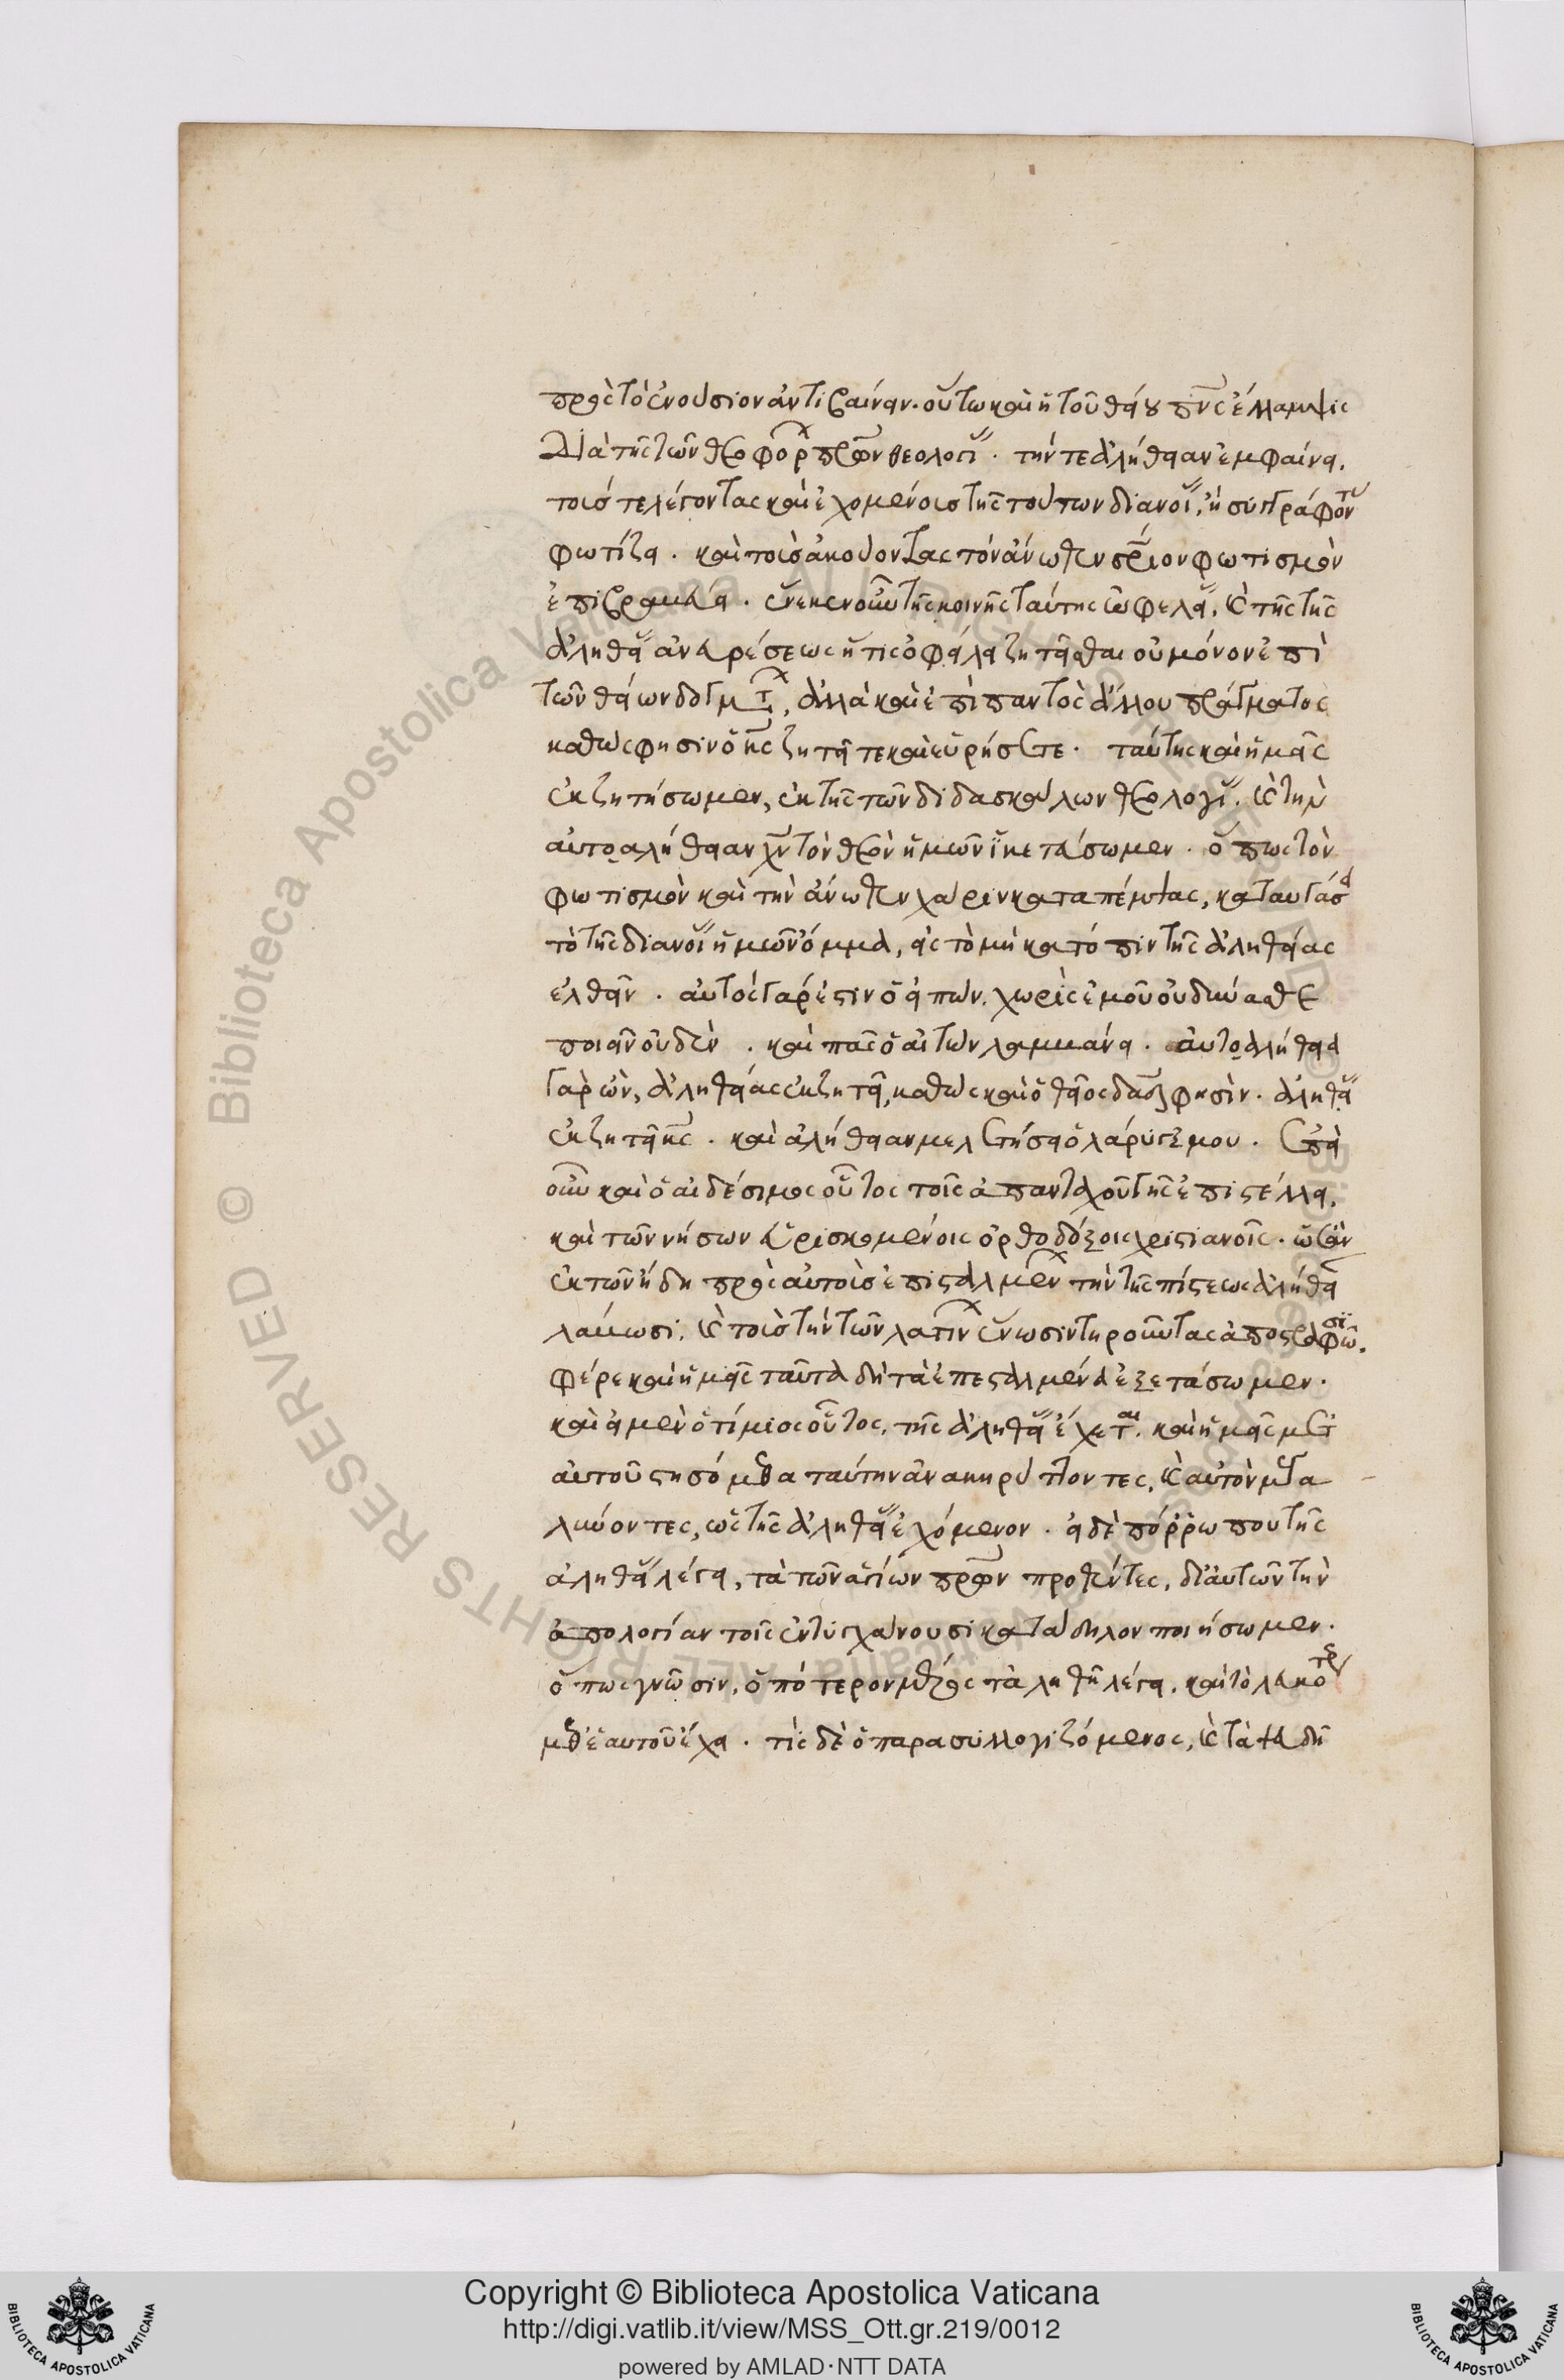 πρὸς τὸ ἐνούσιον ἀντιβαίνειν. οὕτω καὶ ἡ τοῦ θείου πνς ἔλλαμψις
διὰ τῆς τῶν θεοφόρ πρων θεολογί. τήν τε ἀλήθειαν ἐμφαίνει.
τούς τε λέγοντας καὶ ἐχομένους τῆς τούτων διανοί, ἢ συγγράφοντ
φωτίζει. καὶ τοὺς ἀκούοντας τὸν ἄνωθεν σριον φωτισμὸν
ἐπιβραβεύει. ἕνεκεν οὖν τῆς κοινῆς ταύτης ὠφελεί, καὶ τῆς τῆς
ἀληθεί ἀνευρέσεως ἥτις ὀφείλει ζητεῖσθαι οὐ μόνον ἐπὶ
τῶν θείων δογμτ, ἀλλὰ καὶ ἐπὶ παντὸς ἄλλου πράγματος
καθώς φησιν ὁ κς ζητεῖτε καὶ εὑρήσετε. ταύτης καὶ ἡμεῖς
ἐκζητήσωμεν, ἐκ τῆς τῶν διδασκάλων θεολογί. καὶ τὴν
αὐτοαλήθειαν χν τὸν θεὸν ἡμῶν ἱκετεύσωμεν. ὅπως τὸν
φωτισμὸν καὶ τὴν ἄνωθεν χάριν καταπέμψας, καταυγάσ
τὸ τῆς διανοί ἡμῶν ὄμμα, εἰς τὸ μὴ κατόπιν τῆς ἀληθείας
ἐλθεῖν. αὐτὸς γάρ ἐστιν ὁ εἰπών. χωρὶς ἐμοῦ οὐ δύνασθε
ποιεῖν οὐδέν. καὶ πᾶς ὁ αἰτῶν λαμβάνει. αὐτοαλήθεια
γὰρ ὤν, ἀληθείας ἐκζητεῖ, καθὼς καὶ ὁ θεῖος δαδ φησίν. ἀληθεί
ἐκζητεῖ κς. καὶ ἀλήθειαν μελετήσει ὁ λάρυγξ μου. ἐπεὶ
οὖν καὶ ὁ αἰδέσιμος οὗτος τοῖς ἁπανταχοῦ γῆς ἐπιστέλλει,
καὶ τῶν νήσων εὑρισκομένοις ὀρθοδόξοις χριστιανοῖς. ὡς ἂν
ἐκ τῶν ἤδη πρὸς αὐτοὺς ἐπισταλμέν τὴν τῆς πίστεως ἀλήθει
λάβωσι. καὶ τοὺς τὴν τῶν λατίν ἕνωσιν τηροῦντας ἀποστραφῶσι.
φέρε καὶ ἡμεῖς ταῦτα δὴ τὰ ἐπεσταλμένα ἐξετάσωμεν.
καὶ εἰ μὲν ὁ τίμιος οὗτος, τῆς ἀληθεί ἔχεται. καὶ ἡμεῖς μετ
αὐτοῦ στησόμεθα ταύτην ἀνακηρύττοντες, καὶ αὐτὸν μεγα
λύνοντες, ὡς τῆς ἀληθεί ἐχόμενον. εἰ δὲ πόρρω που τῆς
ἀληθεί λέγει, τὰ τῶν ἁγίων πρων προθέντες, δι' αὐτῶν τὴν
ἀπολογίαν τοῖς ἐντυγχάνουσι κατάδηλον ποιήσωμεν.
ὅπως γνῶσιν, ὁπότερον μέρος τἀληθῆ λέγει. καὶ τὸ
μεθ' ἑαυτοῦ ἔχει. τίς δὲ ὁ παρασυλλογιζόμενος, καὶ τὰ ψευδῆ
Copyright © Biblioteca Apostolica Vaticana
http://digi.vatlib.it/view/MSS_Ott.gr.219/0012
powered by AMLAD·NTT DATA